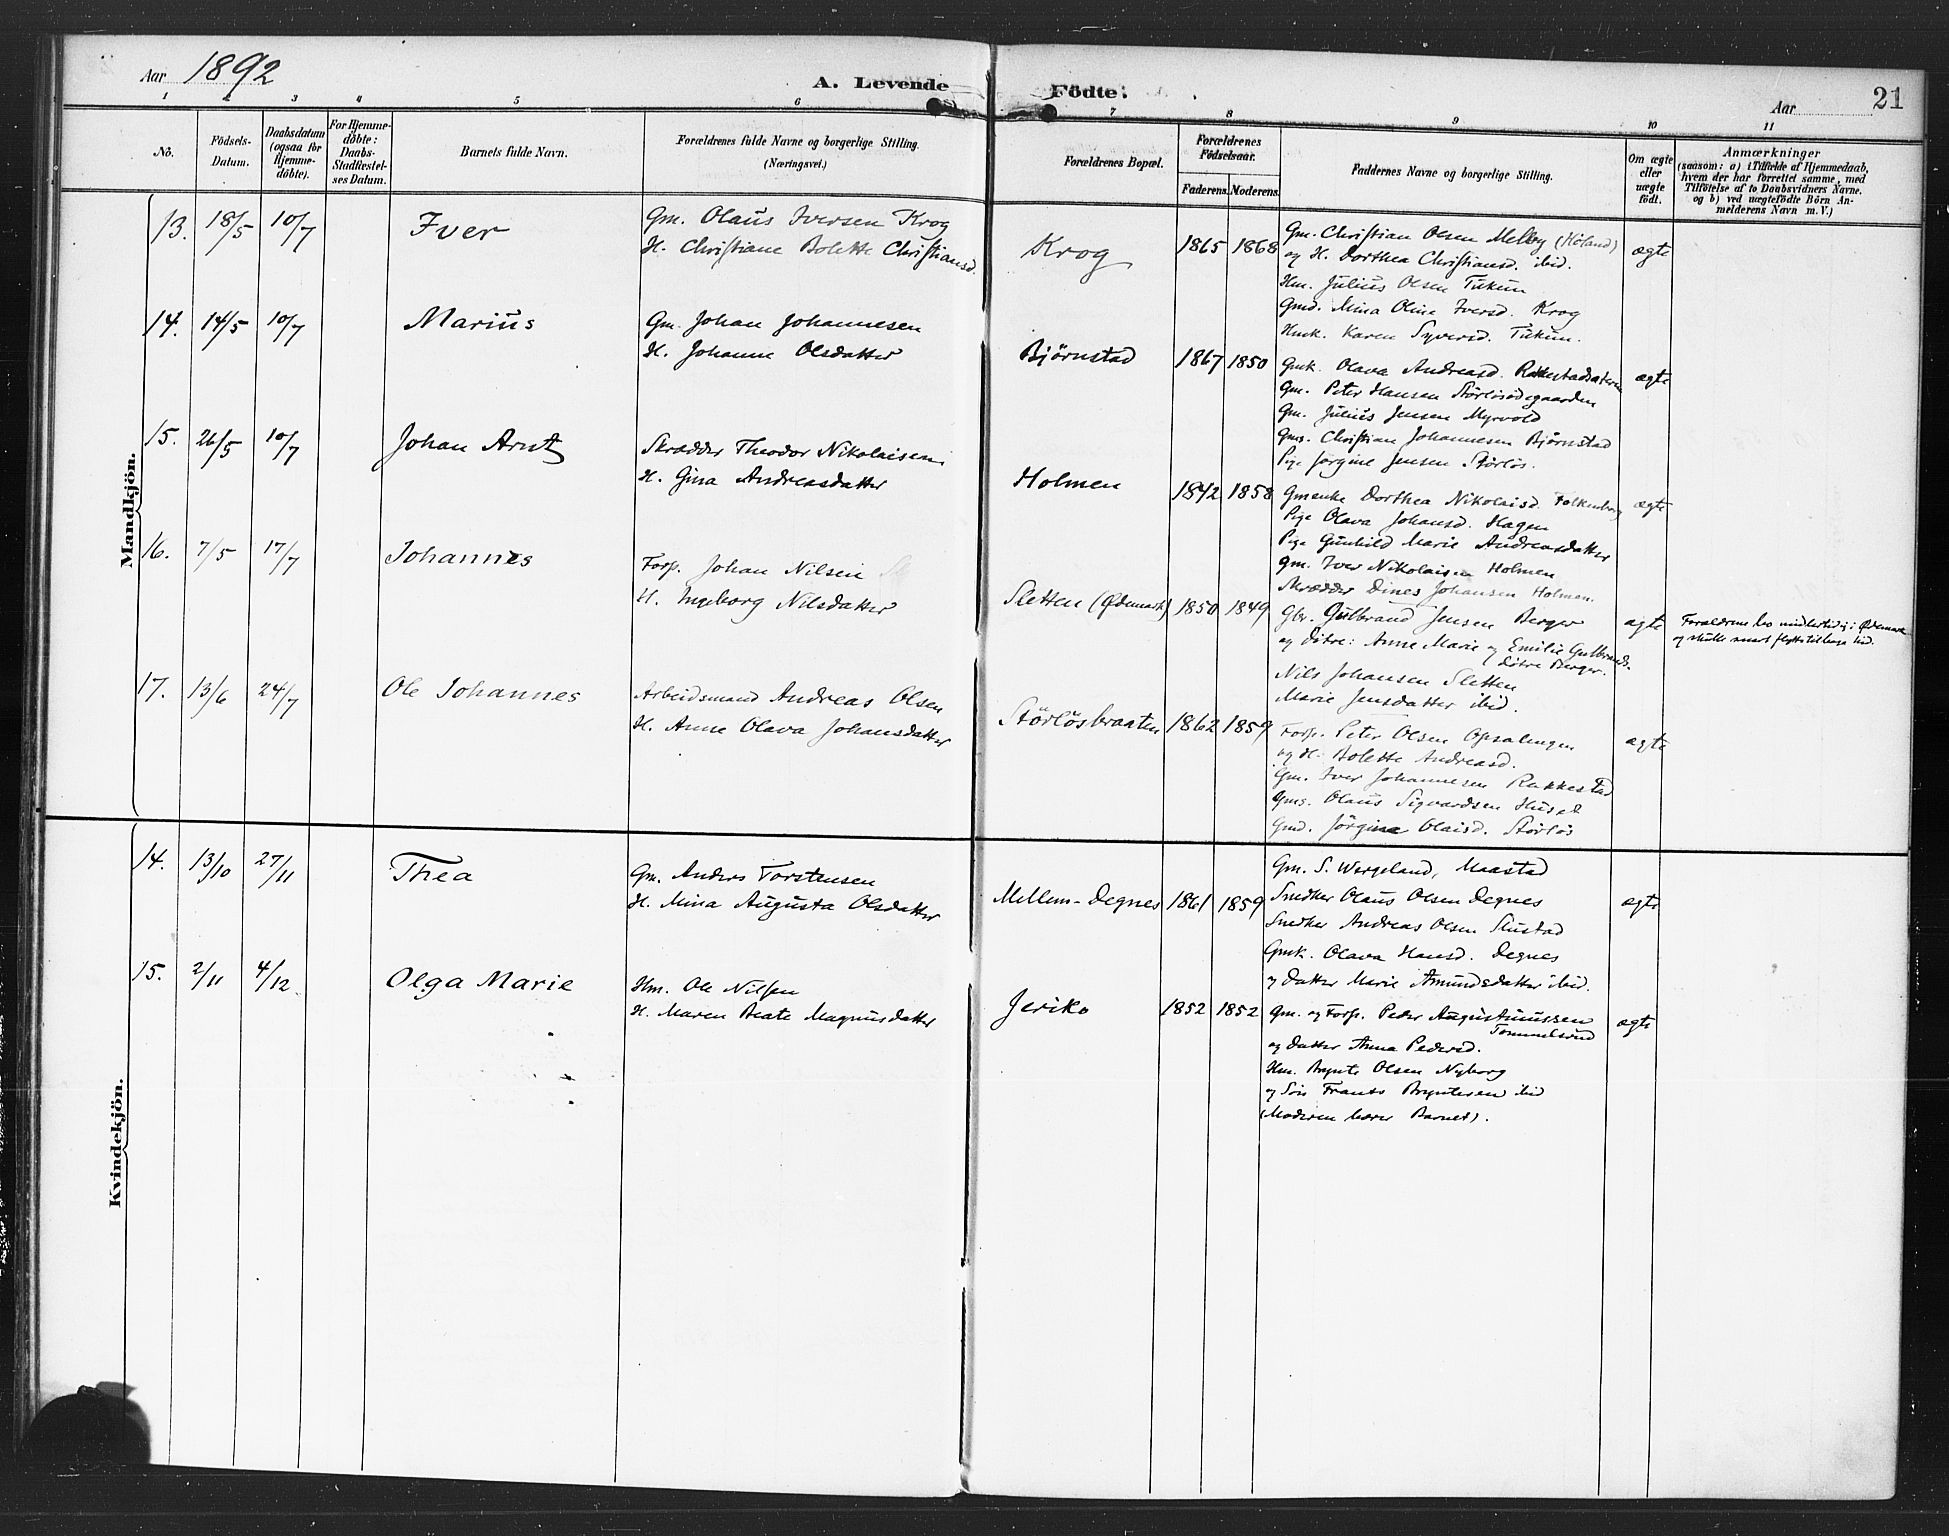 Aar 1892
A. Levende Födte:
Aar 21
1 2 3 4 5 6 7 8 9 10 11
No.
Födsels-Datum.
Daabsdatum (ogsaa for Hjemme-döbte).
For Hjemme-döbte: Daabs-Stadfæstel-ses Datum.
Barnets fulde Navn.
Forældrenes fulde Navne og borgerlige Stilling. (Næringsvei.)
Forældrenes Bopæl.
Forældrenes Födselsaar.
Faderens. Moderens.
Faddernes Navne og borgerlige Stilling.
Om ægte eller uægte födt.
Anmærkninger
(saasom: a) i Tilfælde af Hjemmedaab,
hvem der har forrettet samme, med
Tilföielse af to Daabsvidners Navne.
og b) ved uægtefödte Börn An-
melderens Navn m. V.)
Mandkjön.
13. 18/5 10/7 Iver
Gm. Olaus Iversen Krog
H. Christiane Bolette Christiansd.
Krog 1865 1868
Gm. Christian Olsen Melby (Höland)
og H. Dorthea Christiansd. ibid.
Hm. Julius Olsen Tukun
Gmd. Mina Oline Iversd. Krog
Hmk. Karen Syversd. Tukun.
ægte
14. 14/5 10/7 Marius
Gm. Johan Johannesen
H. Johanne Olsdatter
Björnstad 1867 1850
Gmk. Olava Andreasd. Rakkestadsæteren
Gm. Peter Hansen Störlösödegaarden
Gm. Julius Jensen Myrvold
Gms. Christian Johannesen Björnstad
Pige Jörgine Jensen Störlös.
ægte
15. 26/5 10/7 Johan Arnt
Skrædder Theodor Nikolaisen
H. Gina Andreasdatter
Holmen 1842 1858
Gmenke Dorthea Nikolaisd. Falkenborg
Pige Olava Johansd. Hagen
Pige Gunhild Marie Andreasdatter
Gm. Iver Nikolaisen Holmen
Skrædder Dines Johansen Holmen.
ægte
16. 7/5 17/7 Johannes
Forp. Johan Nilsen
H. Ingeborg Nilsdatter
Sletten (Ødemark) 1850 1849
Gbr. Gulbrand Jensen Berger
og Døtre: Anne Marie og Emilie Gulbrands-
døtre Berger.
Nils Johansen Sletten
Marie Jensdatter ibid.
ægte
Forældrene bo midlertidig i Ødemark
og skulle snart flytte tilbage hid.
17. 13/6 24/7 Ole Johannes
Arbeidsmand Andreas Olsen
H. Anne Olava Johansdatter
Störlösbraaten 1862 1859
Forp. Peter Olsen Opsalengen
og H. Bolette Andreasd.
Gm. Iver Johannesen Rakkestad
Gms. Olaus Sigvardsen Huset
Gmd. Jörgine Olaisd. Störlös
ægte
Kvindekjön.
14. 13/10 27/11 Thea
Gm. Anders Torstensen
H. Mina Augusta Olsdatter
Mellem-Degnes 1861 1859
Gm. S. Wergeland, Maastad
Snedker Olaus Olsen Degnes
Snedker Andreas Olsen Slustad
Gmk. Olava Hansd. Degnes
og Datter Marie Amundsdatter ibid.
ægte
15. 2/11 4/12 Olga Marie
Hm. Ole Nilsen
H. Maren Beate Magnusdatter
Jeriko 1852 1852
Gm. og Forp. Peder Augustinussen
Tommelsrud
og Datter Anna Pedersd.
Hm. Brynte Olsen Nyborg
og Søn Frants Bryntesen ibid
(Moderen bærer Barnet).
ægte